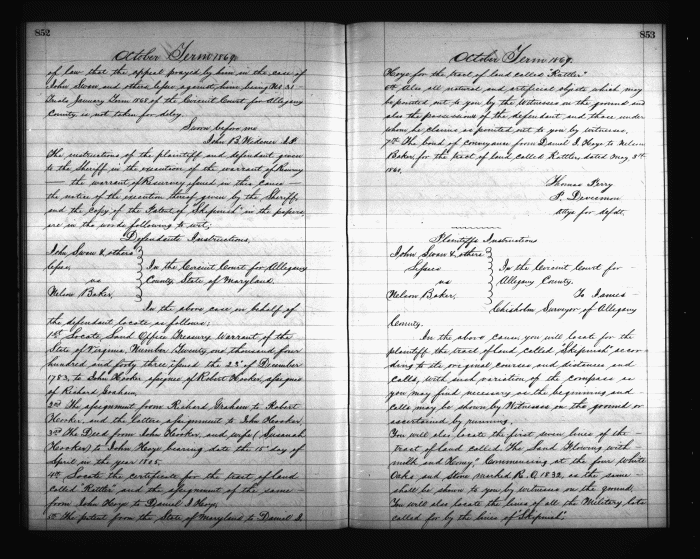 852
October Term 1869.
of law that the appeal prayed by him in the case of
John Swan and others lessee against him being No 31
Trials January Term 1868 of the Circuit Court for Allegany
County is not taken for delay
Sworn before me
John B. Widener J.P.
The instructions of the plaintiff and defendant given
to the Sheriff in the execution of the warrant of
the warrant of Resurvey issued in this cause
the notice of the execution thereof given by the Sheriff,
and the copy of the Patent of "Skipnish" in the papers,
are in the words following to wit;
Defendants Instructions,
John Swan & others
Lessee,
vs
Nelson Baker,
In the Circuit Court for Allegany
County State of Maryland.
In the above case in behalf of
the defendant locate as follows:
1st Locate Land Office Treasury Warrant of the
State of Virginia, Number Twenty one thousand four
hundred and forty three issued the 23d of December
1783, to John Hooker assignee of Robert Hooker, assignee
of Richard Graham,
2nd The assignment from Richard Graham to Robert
Hooker and the latter assignment to John Hooker,
3rd The Deed from John Hooker and wife (Susanah
Hooker) to John Hoye bearing date the 15th day of
April in the year 1805,
4th Locate the certificate for the tract of land
called Rattler and the assignment of the same
from John Hoye to Daniel I Hoye,
5th The patent from the State of Maryland to Daniel I.
853
October Term 1869.
Hoye for the tract of land called "Rattler"
6th Also all natural and artificial objects which may
be pointed out to you by the witnesses on the ground and
also the possessions of the defendant and those under
whom he claims as pointed out to you by witnesses,
7th The bond of conveyance from Daniel I Hoye to Nelson
Baker for the tract of land called Rattler, dated May 3rd
Thomas Perry
P. Devecmon
Attys for Defdt.
Plaintiffs Instructions
John Swan & others
Lessee
vs
Nelson Baker,
In the Circuit Court for
Allegany County.
To James
Chisholm Surveyor of Allegany
County.
In the above cause you will locate for the
plaintiff, the tract of land called "Skipnish" accor-
ding to its original courses and distances and
calls, with such variation of the compass as
you may find necessary as the beginning and
calls may be shown by Witnesses on the ground or
ascertained by running.
You will also locate the first seven lines of the
tract of land called "The Land Flowing with
milk and Honey," Commencing at the four White
Oaks and Stone marked B. O, 1832, as the same
shall be shown to you by witness on the ground.
You will also locate the lines of all the Military lots
called for by the lines of "Skipnish".